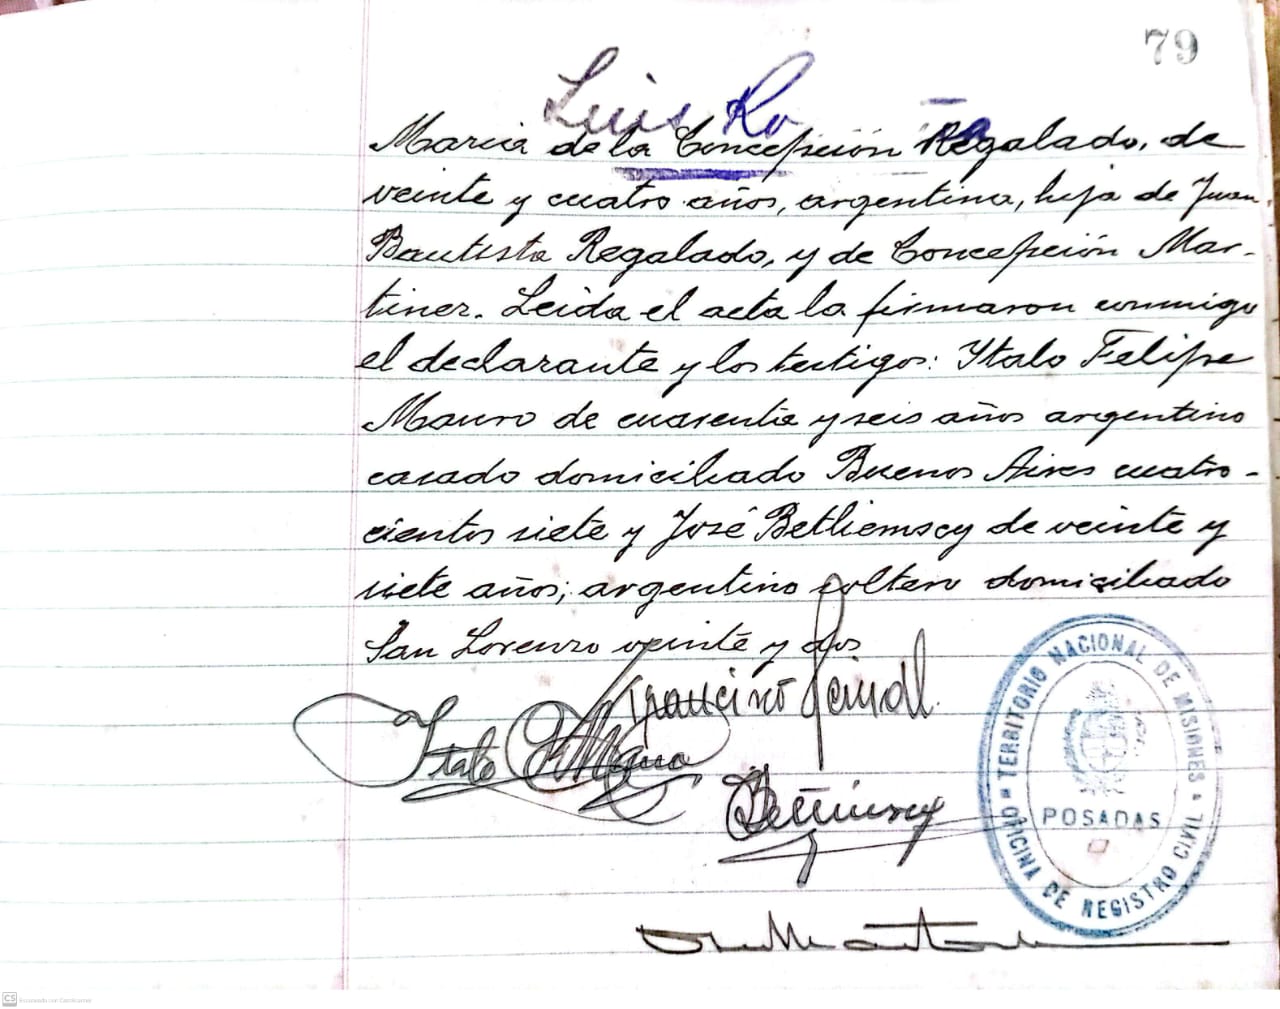 79
Luis Ro
Maria de la Concepción Regalado, de
veinte y cuatro años, argentina, hija de Juan
Bautista Regalado, y de Concepción Mar-
tinez. Leida el acta la firmaron conmigo
el declarante y los testigos: Ytalo Felipe
Mauro de cuarenta y seis años argentino
casado domiciliado Buenos Aires cuatro-
cientos siete y José Betliemscy de veinte y
siete años; argentino soltero domiciliado
San Lorenzo veinte y dos
Francisco
Italo F Mauro
TERRITORIO NACIONAL DE MISIONES
POSADAS
OFICINA DE REGISTRO CIVIL
CS Escaneado con CamScanner